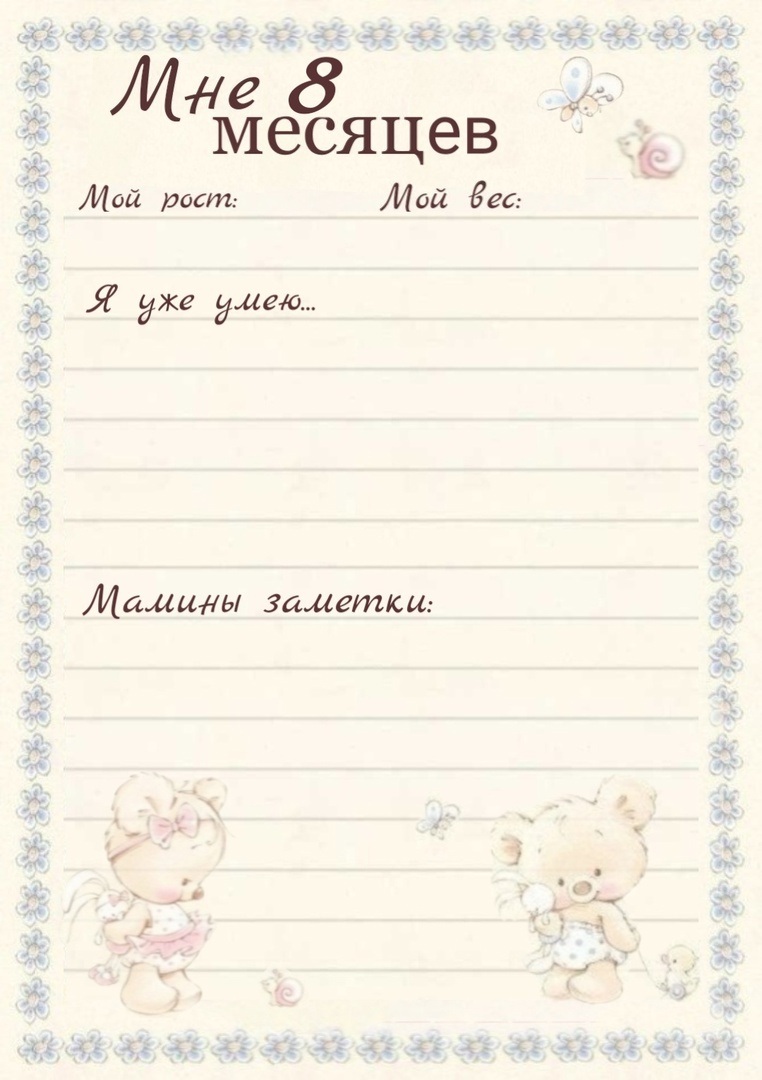 Мне 8
месяцев
Мой рост: Мой вес:
Я уже умею...
Мамины заметки: